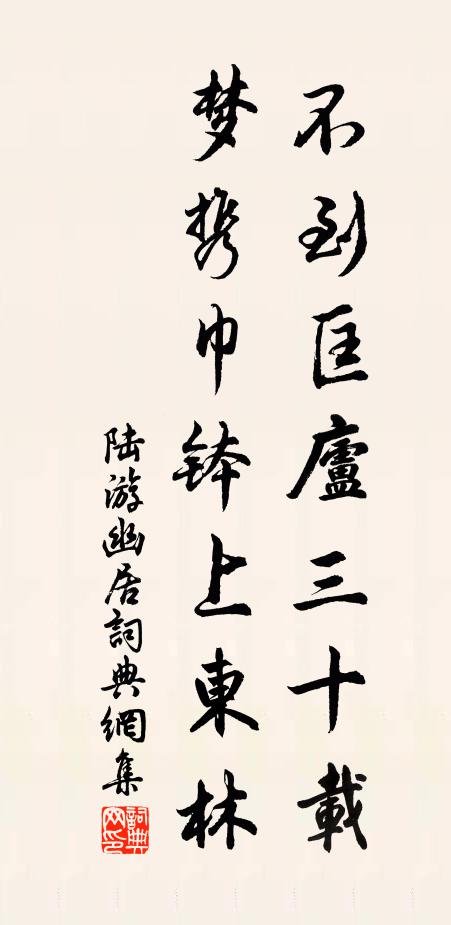 不到匡廬三十載
梦携巾鉢上東林
陆游幽居詞典網集
詞典网印